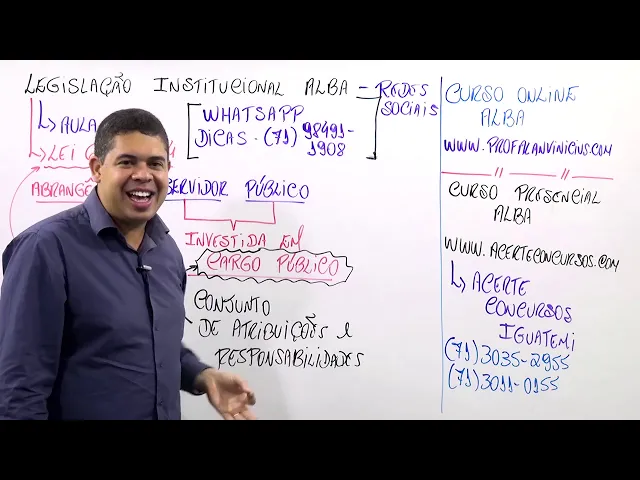 LEGISLAÇÃO INSTITUCIONAL ALBA - REDES SOCIAIS
AULA
WHATSAPP
DICAS - (71) 98491-1908
LEI
ABRANGÊ
SERVIDOR PÚBLICO
INVESTIDA EM
CARGO PÚBLICO
CONJUNTO
DE ATRIBUIÇÕES E
RESPONSABILIDADES
CURSO ONLINE
ALBA
WWW.PROFALANVINICIUS.COM
CURSO PRESENCIAL
ALBA
WWW.ACERTECONCURSOS.COM
ACERTE
CONCURSOS
IGUATEMI
(71) 3035-2955
(71) 3011-0155